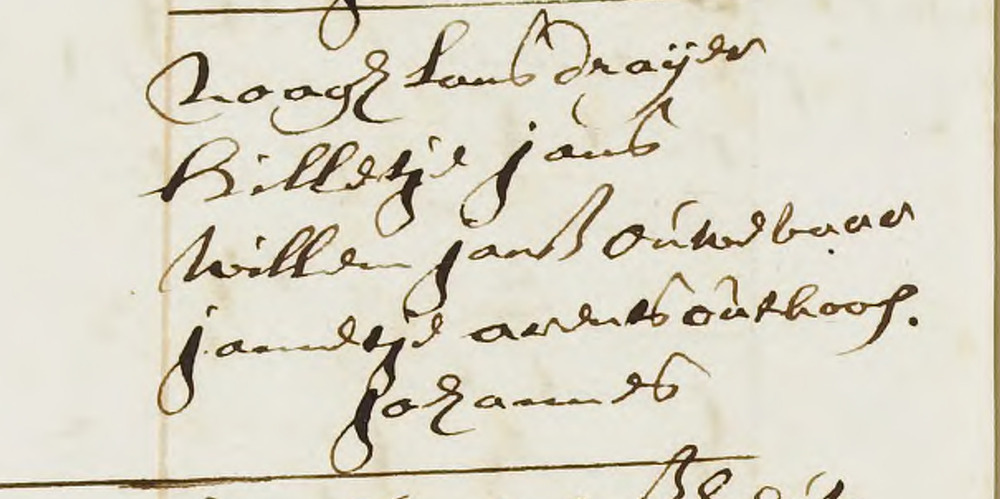 Noagh hans drayer
hilletje jans
Willem jansz ouwebaar
jannetje arents outhoof.
Johannes